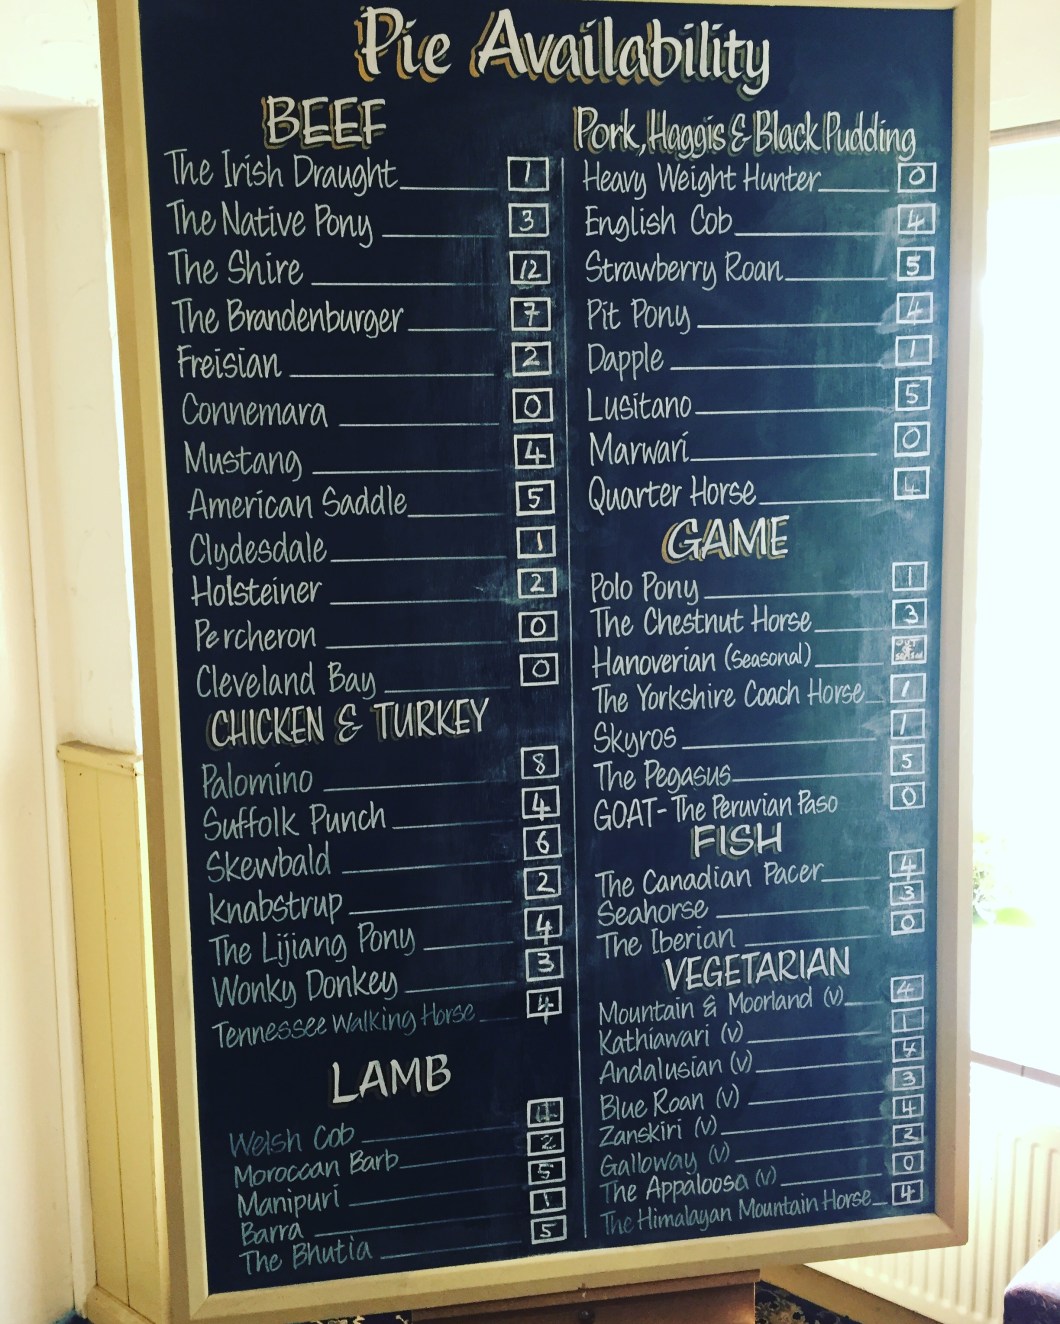 Pie Availability
BEEF
The Irish Draught 1
The Native Pony 3
The Shire 12
The Brandenburger 7
Freisian 2
Connemara 0
Mustang 4
American Saddle 5
Clydesdale 1
Holsteiner 2
Percheron 0
Cleveland Bay 0
CHICKEN & TURKEY
Palomino 8
Suffolk Punch 4
Skewbald 6
Knabstrup 2
The Lijiang Pony 4
Wonky Donkey 3
Tennessee Walking Horse 4
LAMB
Welsh Cob
Moroccan Barb 2
Manipuri 5
Barra 1
The Bhutia 5
Pork, Haggis & Black Pudding
Heavy Weight Hunter 0
English Cob 4
Strawberry Roan 5
Pit Pony 4
Dapple 1
Lusitano 5
Marwari 0
Quarter Horse 4
GAME
Polo Pony 1
The Chestnut Horse 3
Hanoverian (Seasonal)
The Yorkshire Coach Horse 1
Skyros 1
The Pegasus 5
GOAT - The Peruvian Paso 0
FISH
The Canadian Pacer 4
Seahorse 3
The Iberian 0
VEGETARIAN
Mountain & Moorland (v) 4
Kathiawari (v) 1
Andalusian (v) 4
Blue Roan (v) 3
Zanskiri (v) 4
Galloway (v) 2
The Appaloosa (v) 0
The Himalayan Mountain Horse 4